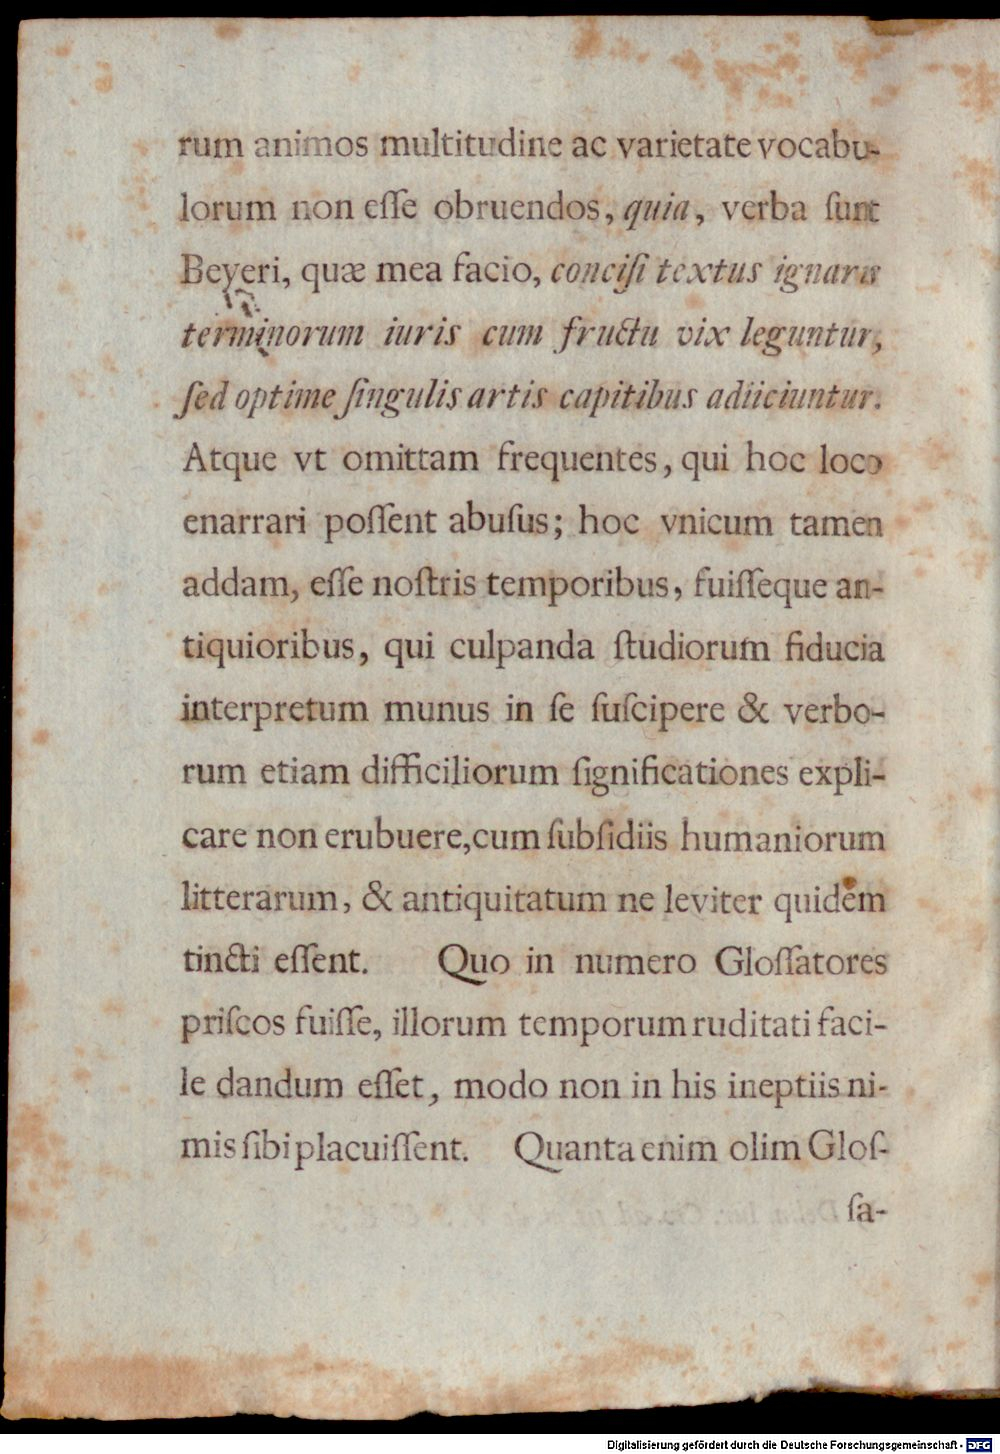 rum animos multitudine ac varietate vocabu-
lorum non eſſe obruendos, quia, verba ſunt
Beyeri, quæ mea facio, conciſi textus ignaris
terminorum iuris cum fructu vix leguntur,
ſed optime ſingulis artis capitibus adiiciuntur.
Atque vt omittam frequentes, qui hoc loco
enarrari poſſent abuſus; hoc vnicum tamen
addam, eſſe noſtris temporibus, fuiſſeque an-
tiquioribus, qui culpanda ſtudiorum fiducia
interpretum munus in ſe ſuſcipere & verbo-
rum etiam difficiliorum ſignificationes expli-
care non erubuere, cum ſubſidiis humaniorum
litterarum, & antiquitatum ne leviter quidem
tincti eſſent. Quo in numero Gloſſatores
priſcos fuiſſe, illorum temporum ruditati faci-
le dandum eſſet, modo non in his ineptiis ni-
mis ſibi placuiſſent. Quanta enim olim Gloſ-
ſa-
Digitalisierung gefördert durch die Deutsche Forschungsgemeinschaft - DFG